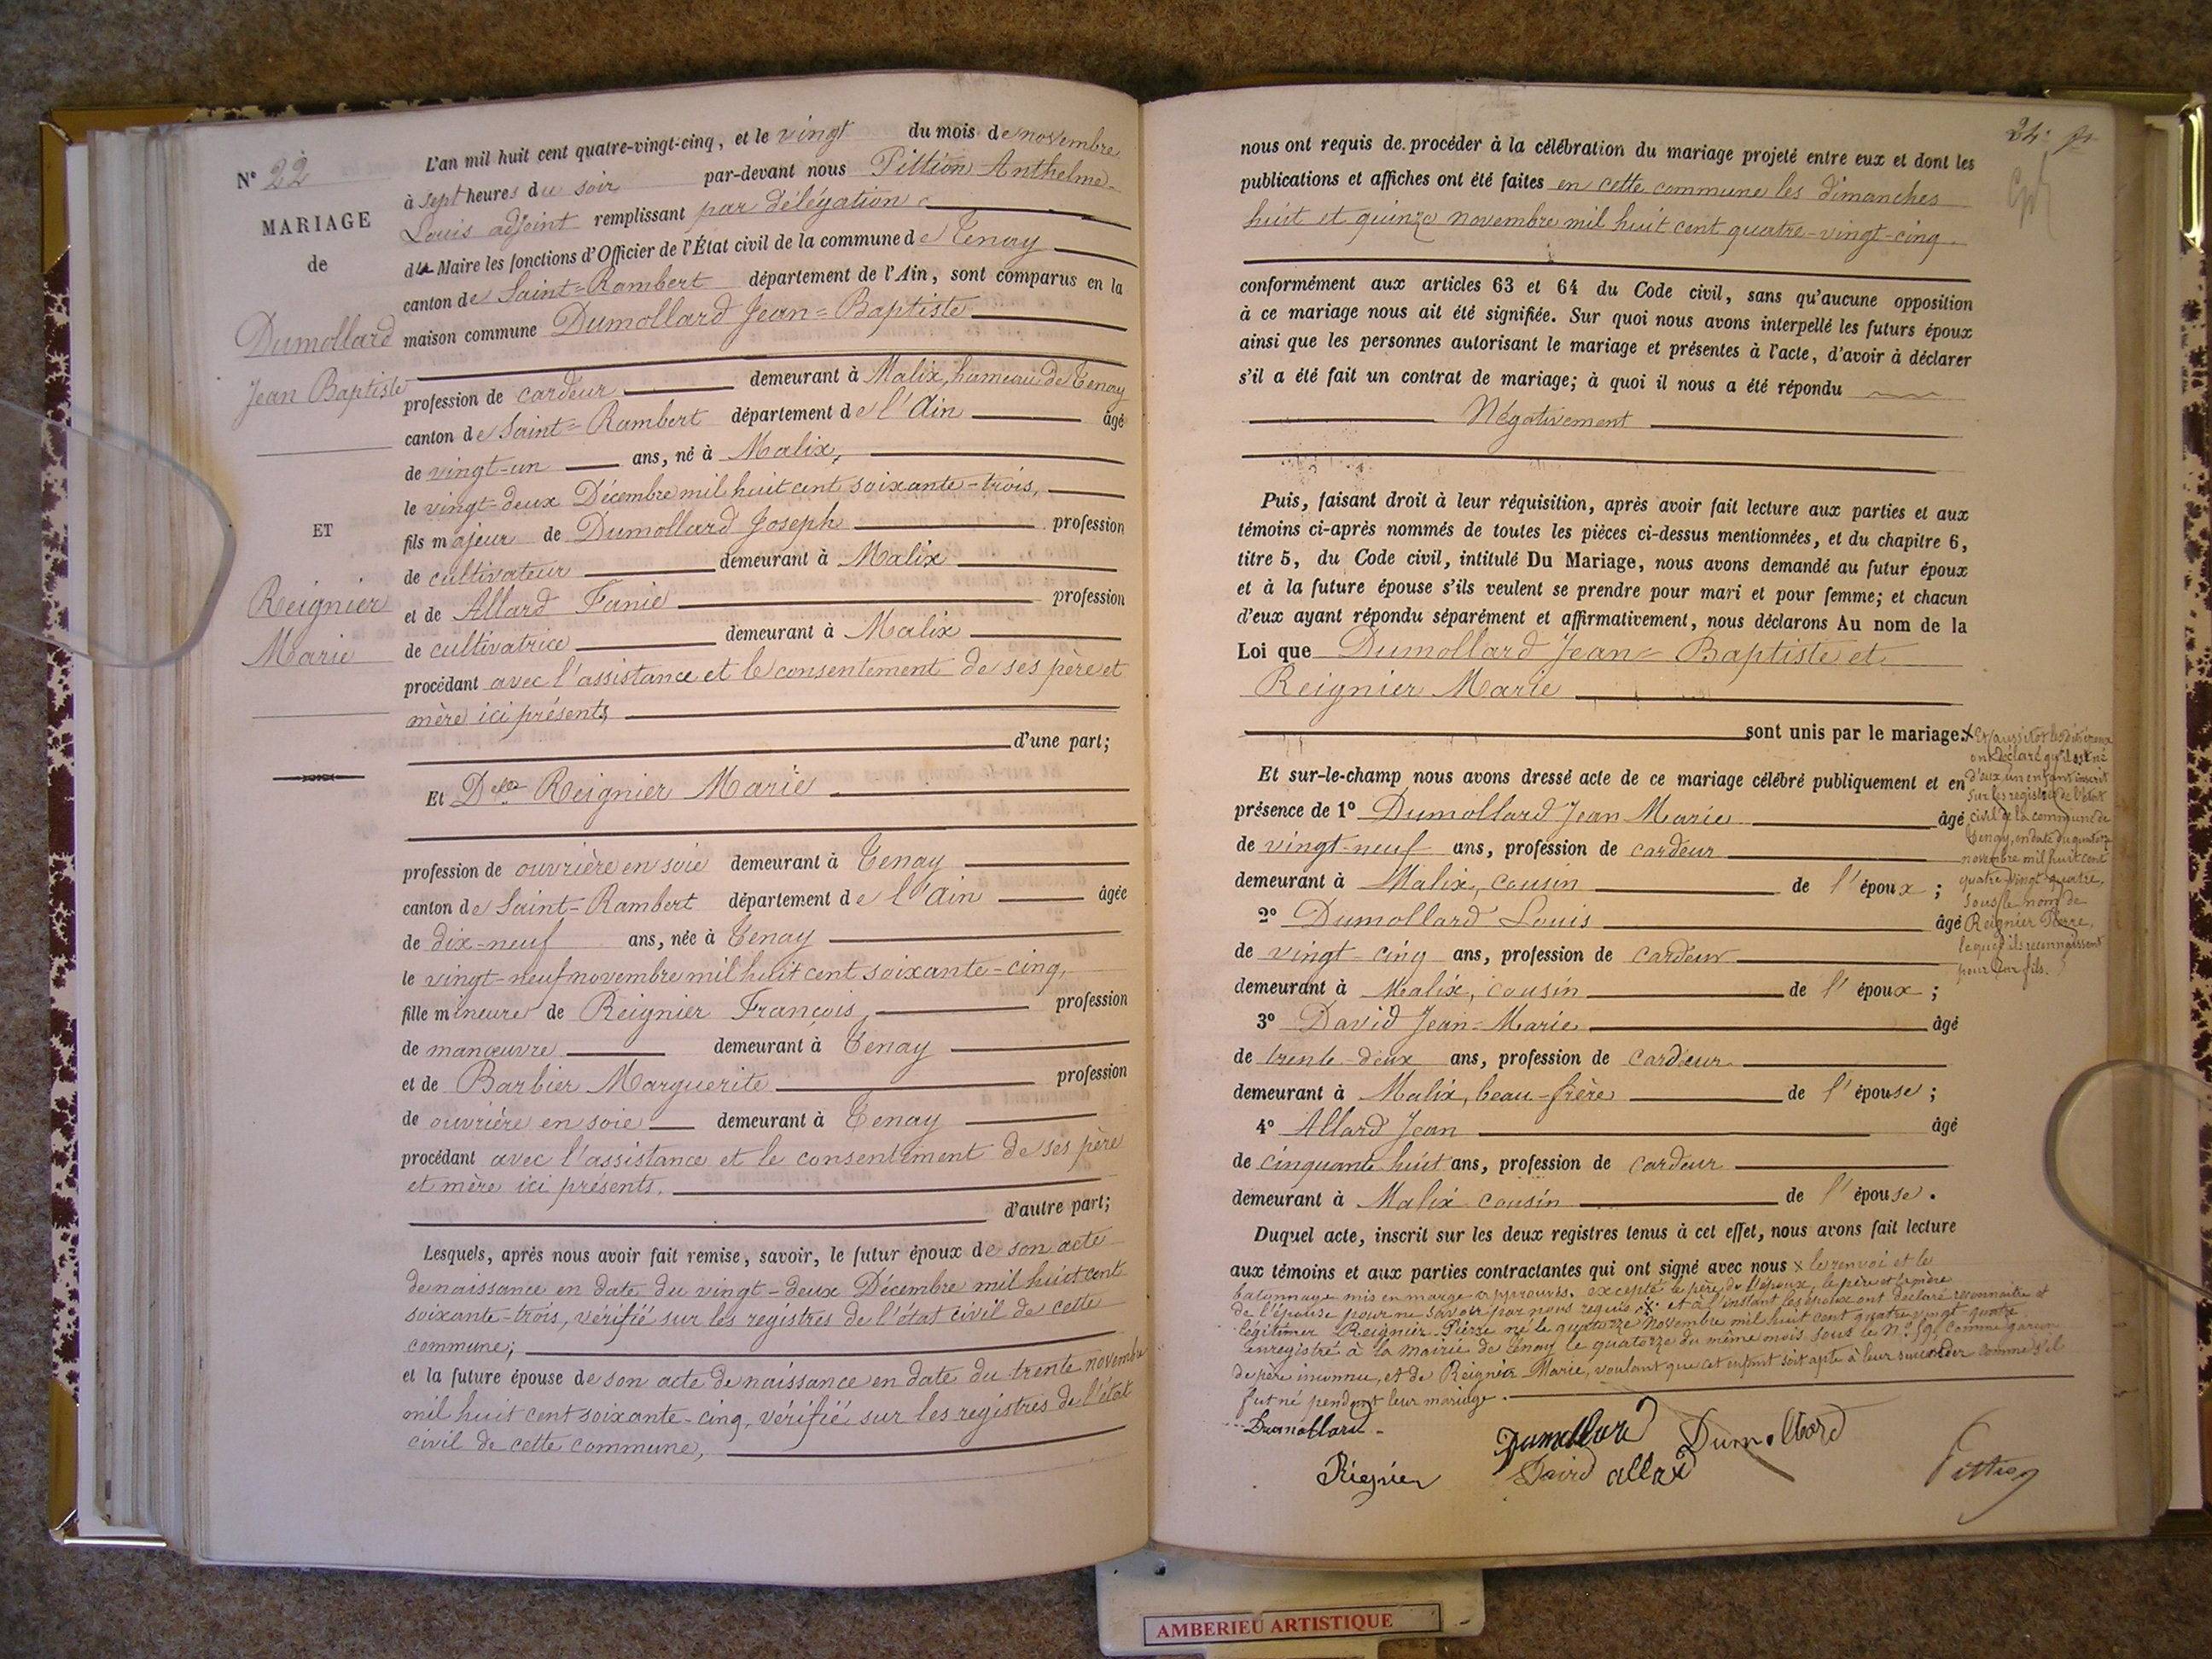 N° 22
MARIAGE
de
Dumollard
Jean Baptiste
ET
Reignier
Marie
L'an mil huit cent quatre-vingt-cinq, et le vingt du mois de novembre
à sept heures du soir par-devant nous Pittion Anthelme-
Louis adjoint remplissant par délégation
du Maire les fonctions d'Officier de l'État civil de la commune de Tenay
canton de Saint=Rambert département de l'Ain, sont comparus en la
maison commune Dumollard Jean=Baptiste
profession de cardeur demeurant à Malix, hameau de Tenay
canton de Saint=Rambert département de l'Ain âgé
de vingt-un ans, né à Malix,
le vingt-deux Décembre mil huit cent soixante-trois,
fils majeur de Dumollard Joseph profession
de cultivateur demeurant à Malix
et de Allard Fanie profession
de cultivatrice demeurant à Malix
procédant avec l'assistance et le consentement de ses père et
mère ici présents
d'une part;
Et Delle Reignier Marie
profession de ouvrière en soie demeurant à Tenay
canton de Saint-Rambert département de l'Ain âgée
de dix-neuf ans, née à Tenay
le vingt-neuf novembre mil huit cent soixante-cinq,
fille mineure de Reignier François, profession
de manœuvre demeurant à Tenay
et de Barbier Marguerite profession
de ouvrière en soie demeurant à Tenay
procédant avec l'assistance et le consentement de ses père
et mère ici présents.
d'autre part;
Lesquels, après nous avoir fait remise, savoir, le futur époux de son acte
de naissance en date du vingt-deux Décembre mil huit cent
soixante-trois, vérifié sur les registres de l'état civil de cette
commune;
et la future épouse de son acte de naissance en date du trente novembre
mil huit cent soixante-cinq, vérifié sur les registres de l'état
civil de cette commune,
24
nous ont requis de procéder à la célébration du mariage projeté entre eux et dont les
publications et affiches ont été faites en cette commune les dimanches
huit et quinze novembre mil huit cent quatre-vingt-cinq.
conformément aux articles 63 et 64 du Code civil, sans qu'aucune opposition
à ce mariage nous ait été signifiée. Sur quoi nous avons interpellé les futurs époux
ainsi que les personnes autorisant le mariage et présentes à l'acte, d'avoir à déclarer
s'il a été fait un contrat de mariage; à quoi il nous a été répondu
Négativement
Puis, faisant droit à leur réquisition, après avoir fait lecture aux parties et aux
témoins ci-après nommés de toutes les pièces ci-dessus mentionnées, et du chapitre 6,
titre 5, du Code civil, intitulé Du Mariage, nous avons demandé au futur époux
et à la future épouse s'ils veulent se prendre pour mari et pour femme; et chacun
d'eux ayant répondu séparément et affirmativement, nous déclarons Au nom de la
Loi que Dumollard Jean=Baptiste et
Reignier Marie
sont unis par le mariage.x
Et aussitôt lesdits époux
ont déclaré qu'il est né
d'eux un enfant inscrit
sur les registres de l'état
civil de la commune de
Tenay, en date du quatorze
novembre mil huit cent
quatre-vingt-quatre,
sous le nom de
Reignier Pierre,
lequel ils reconnaissent
pour leur fils.
Et sur-le-champ nous avons dressé acte de ce mariage célébré publiquement et en
présence de 1° Dumollard Jean Marie âgé
de vingt-neuf ans, profession de cardeur
demeurant à Malix, cousin de l'époux ;
2° Dumollard Louis âgé
de vingt-cinq ans, profession de cardeur
demeurant à Malix, cousin de l'époux ;
3° David Jean-Marie âgé
de trente-deux ans, profession de cardeur
demeurant à Malix, beau-frère de l'épouse ;
4° Allard Jean âgé
de cinquante huit ans, profession de cardeur
demeurant à Malix cousin de l'épouse.
Duquel acte, inscrit sur les deux registres tenus à cet effet, nous avons fait lecture
aux témoins et aux parties contractantes qui ont signé avec nous x le renvoi et le
batonnage mis en marge approuvés. excepté le père de l'époux, le père et la mère
de l'épouse pour ne savoir par nous requis .x. et à l'instant les époux ont déclaré reconnaître et
légitimer Reignier Pierre né le quatorze Novembre mil huit cent quatre vingt quatre
enregistré à la mairie de Tenay le quatorze du même mois sous le N° 59, comme garçon
de père inconnu, et de Reignier Marie, voulant que cet enfant soit apte à leur succéder comme s'il
fut né pendant leur mariage.
Dumollard
Dumollard
Dumollard
Reignier
David
allard
Pittion
AMBERIEU ARTISTIQUE